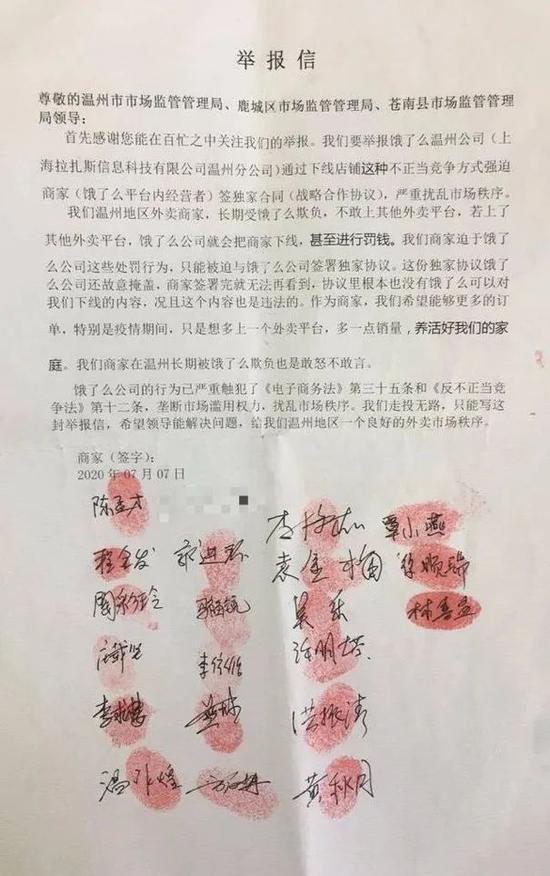 举报信
尊敬的温州市市场监管管理局、鹿城区市场监管管理局、苍南县市场监管管理
局领导:
首先感谢您能在百忙之中关注我们的举报。我们要举报饿了么温州公司(上
海拉扎斯信息科技有限公司温州分公司)通过下线店铺这种不正当竞争方式强迫
商家(饿了么平台内经营者)签独家合同(战略合作协议),严重扰乱市场秩序。
我们温州地区外卖商家,长期受饿了么欺负,不敢上其他外卖平台,若上了
其他外卖平台,饿了么公司就会把商家下线,甚至进行罚钱。我们商家迫于饿了
么公司这些处罚行为,只能被迫与饿了么公司签署独家协议。这份独家协议饿了
么公司还故意掩盖,商家签署完就无法再看到,协议里根本也没有饿了么可以对
我们下线的内容,况且这个内容也是违法的。作为商家,我们希望能够更多的订
单,特别是疫情期间,只是想多上一个外卖平台,多一点销量,养活好我们的家
庭。我们商家在温州长期被饿了么欺负也是敢怒不敢言。
饿了么公司的行为已严重触犯了《电子商务法》第三十五条和《反不正当竞
争法》第十二条,垄断市场滥用权力,扰乱市场秩序。我们走投无路,只能写这
封举报信,希望领导能解决问题,给我们温州地区一个良好的外卖市场秩序。
商家(签字):
2020年07月07日
陈孟才
覃小燕
吴乐
洪振涛
黄秋月